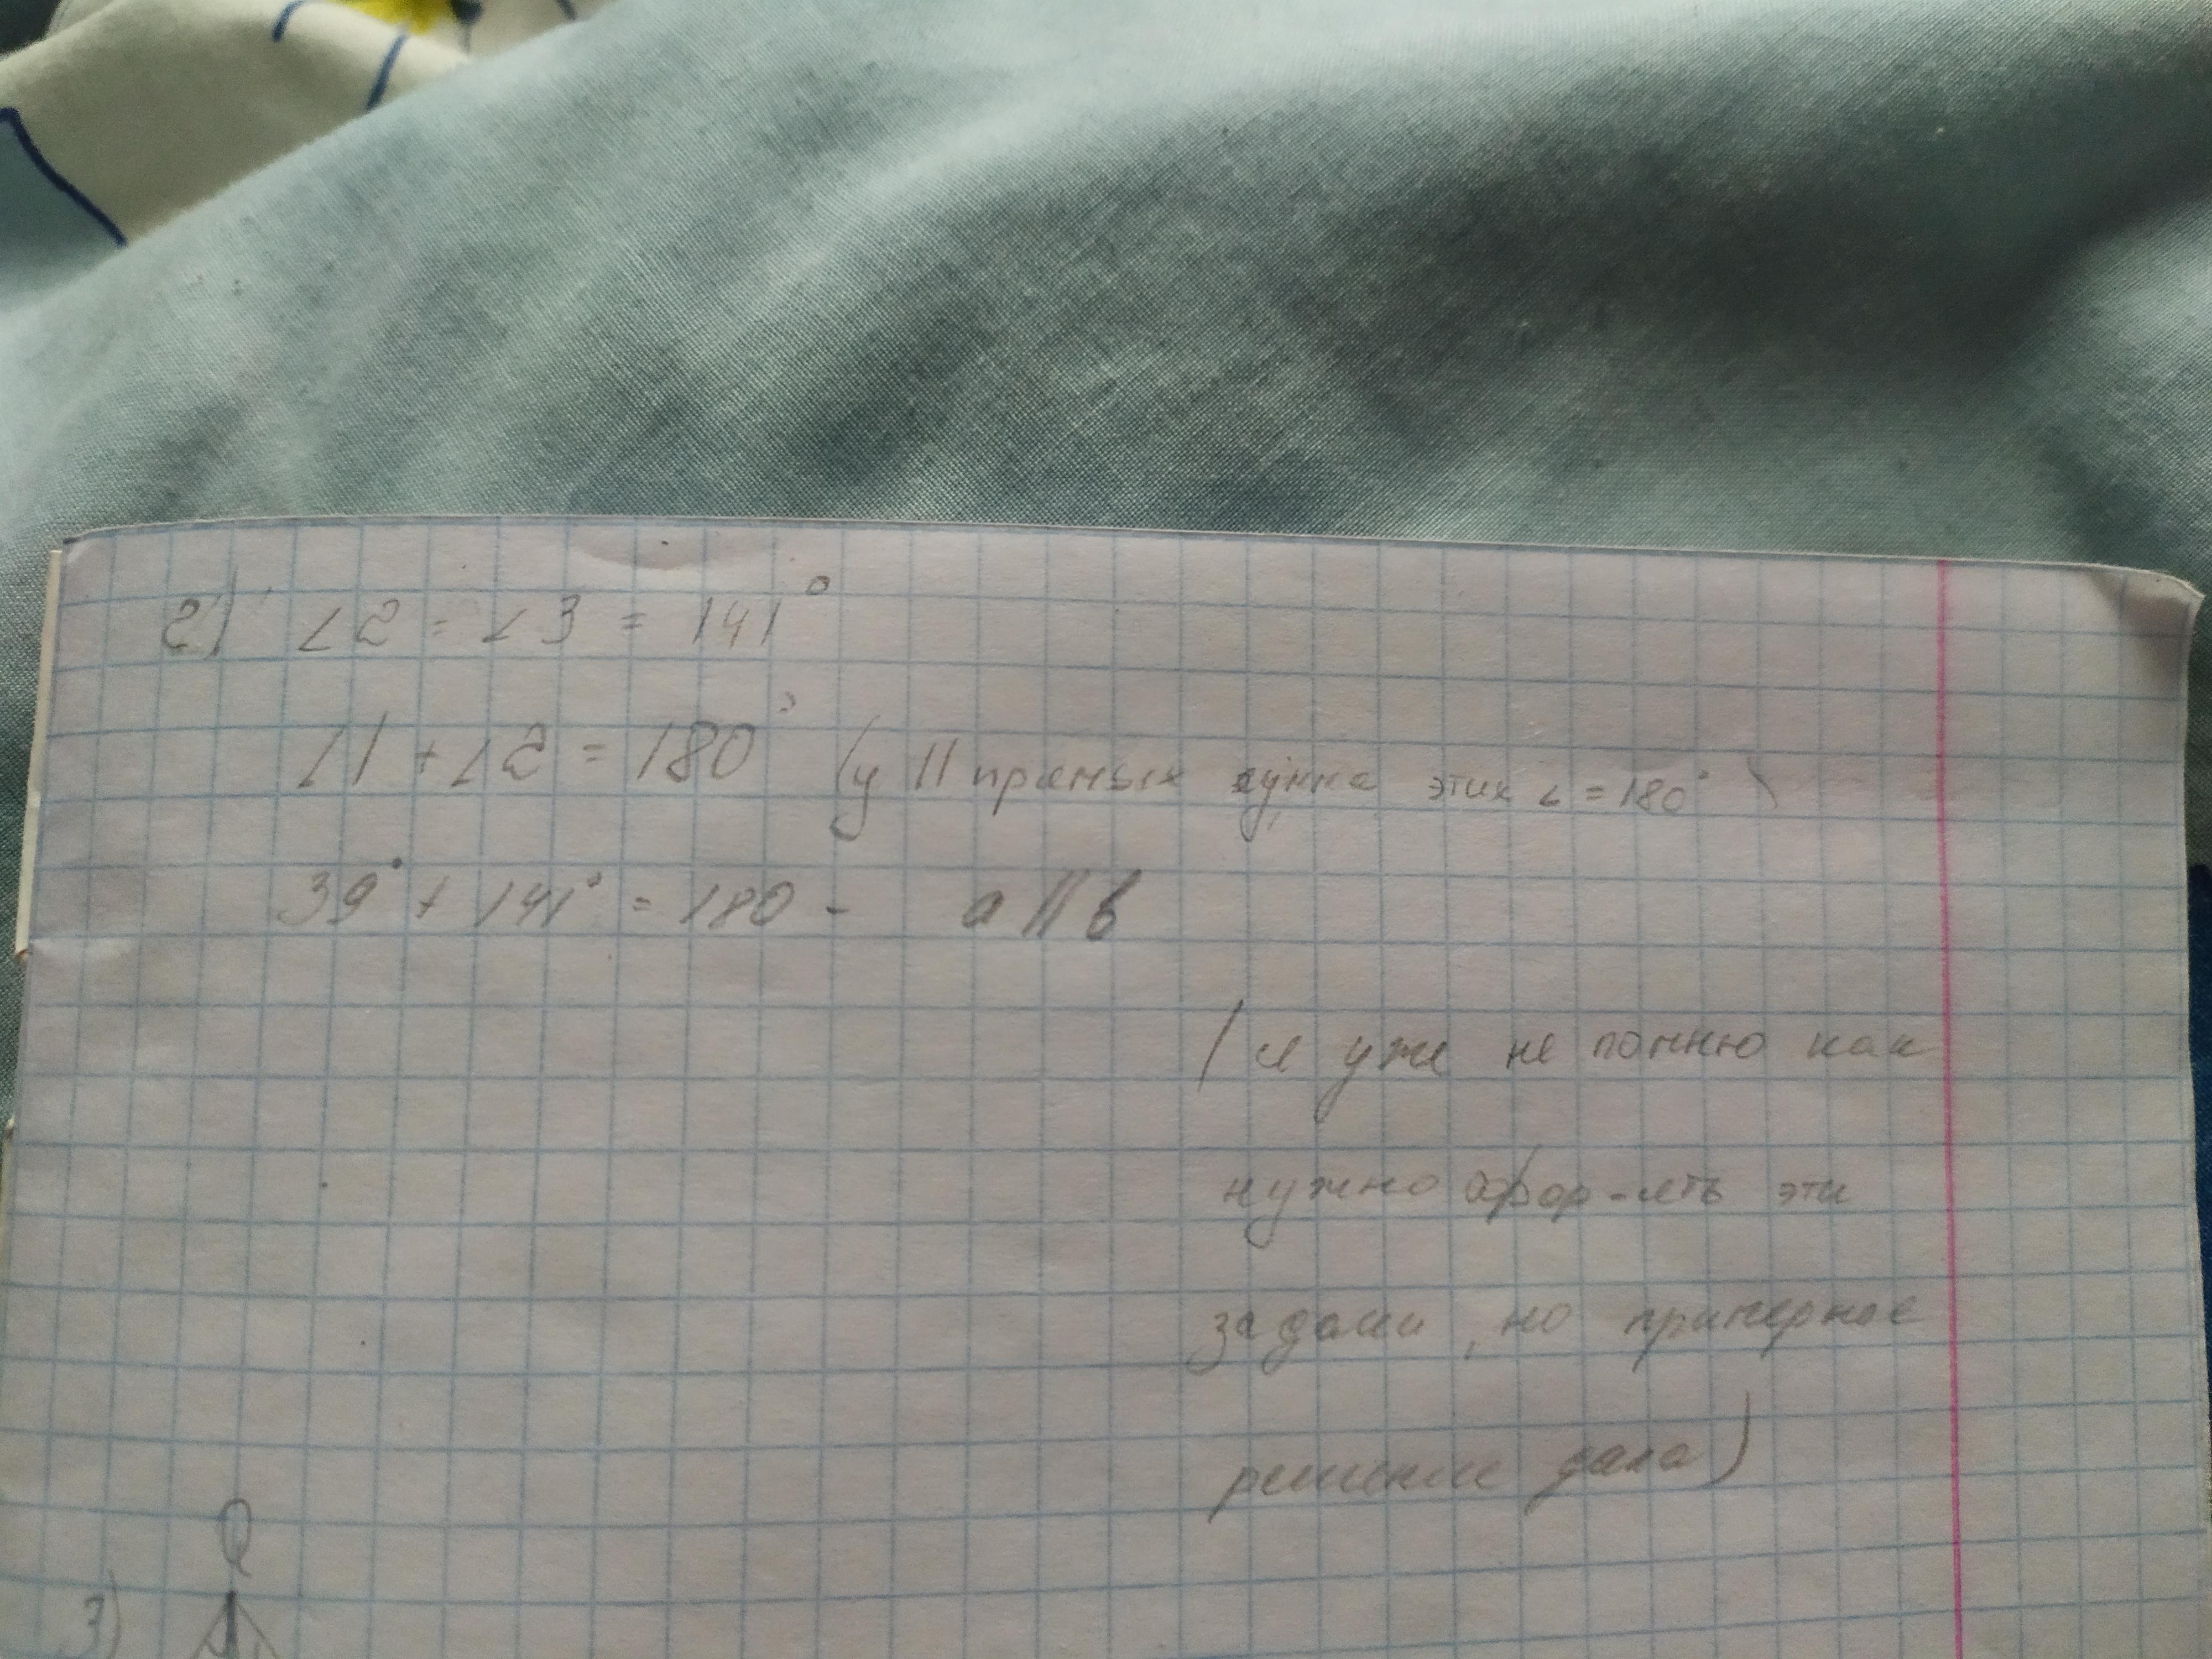 2) ∠2 = ∠3 = 141°
∠1 + ∠2 = 180° (у || прямых сумма этих ∠ = 180°)
39° + 141° = 180 - a || b
(я уже не помню как
нужно офор-лять эти
задачи, но примерное
решение дала)
Q
3)